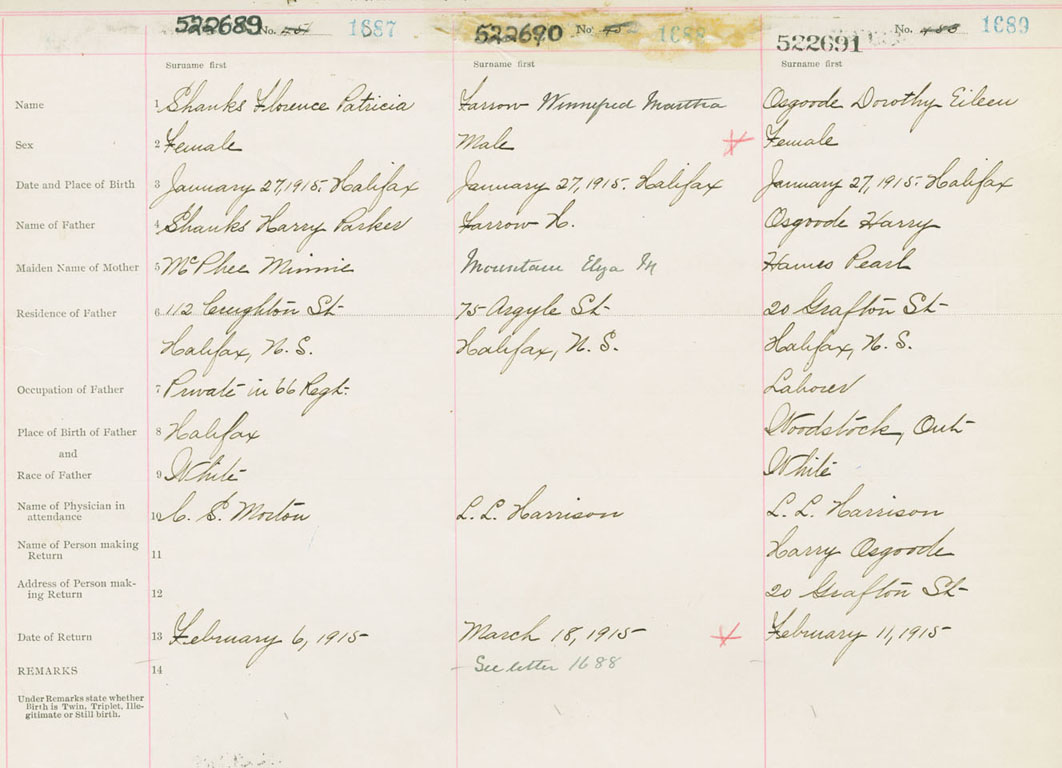 522689 No. 1687
522690 No 1688
522691 No. 1689
Surname first Surname first Surname first
Name 1 Shanks Florence Patricia Farrow Winnifred Martha Osgoode Dorothy Eileen
Sex 2 Female Male Female
Date and Place of Birth 3 January 27, 1915. Halifax January 27, 1915. Halifax January 27, 1915. Halifax
Name of Father 4 Shanks Harry Parker Farrow H. Osgoode Harry
Maiden Name of Mother 5 McPhee Minnie Mountain Elza M Hames Pearl
Residence of Father 6 112 Creighton St 75 Argyle St 20 Grafton St
Halifax, N.S. Halifax, N.S. Halifax, N.S.
Occupation of Father 7 Private in 66 Regt. Laborer
Place of Birth of Father 8 Halifax Woodstock, Ont
and
Race of Father 9 White White
Name of Physician in
attendance 10 C. S. Morton L. L. Harrison L. L. Harrison
Name of Person making
Return 11 Harry Osgoode
Address of Person mak-
ing Return 12 20 Grafton St
Date of Return 13 February 6, 1915 March 18, 1915 February 11, 1915
REMARKS 14 See letter 1688
Under Remarks state whether
Birth is Twin, Triplet, Ille-
gitimate or Still birth.